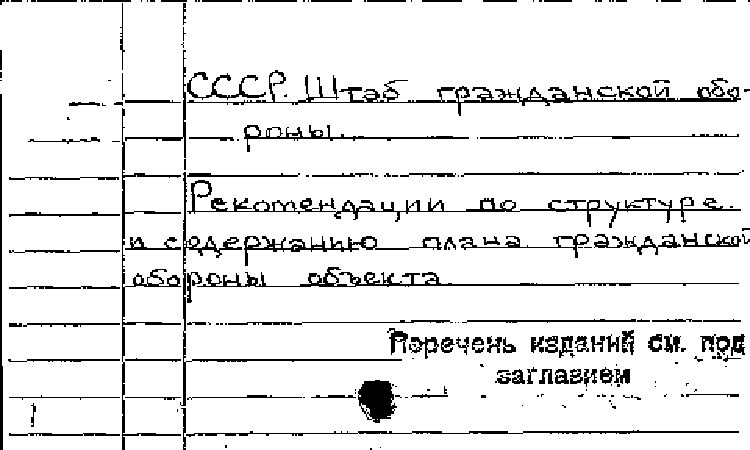 СССР. Штаб гражданской обо-
роны.
Рекомендации по структуре
и содержанию плана гражданской
обороны объекта
Перечень изданий см. под
заглавием